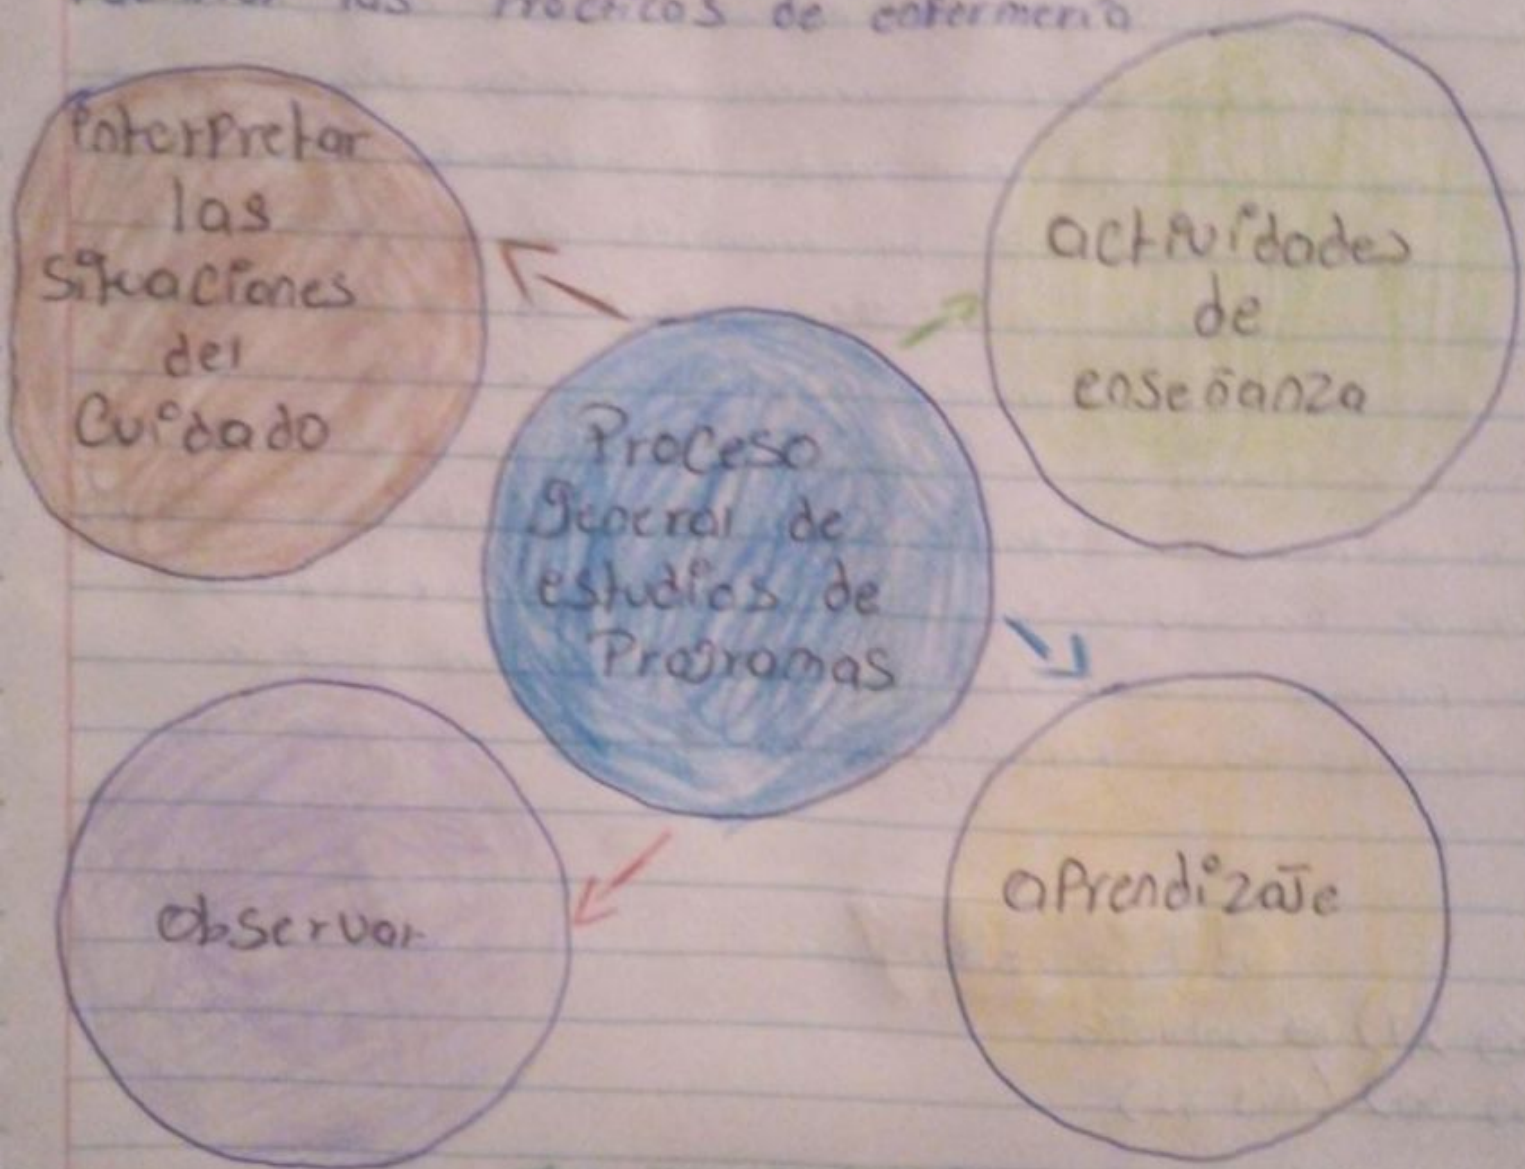 las Practicas de enfermeria
interpretar
las
Situaciones
del
Cuidado
actividades
de
enseñanza
Proceso
general de
estudios de
Programas
Observar
aprendizaje